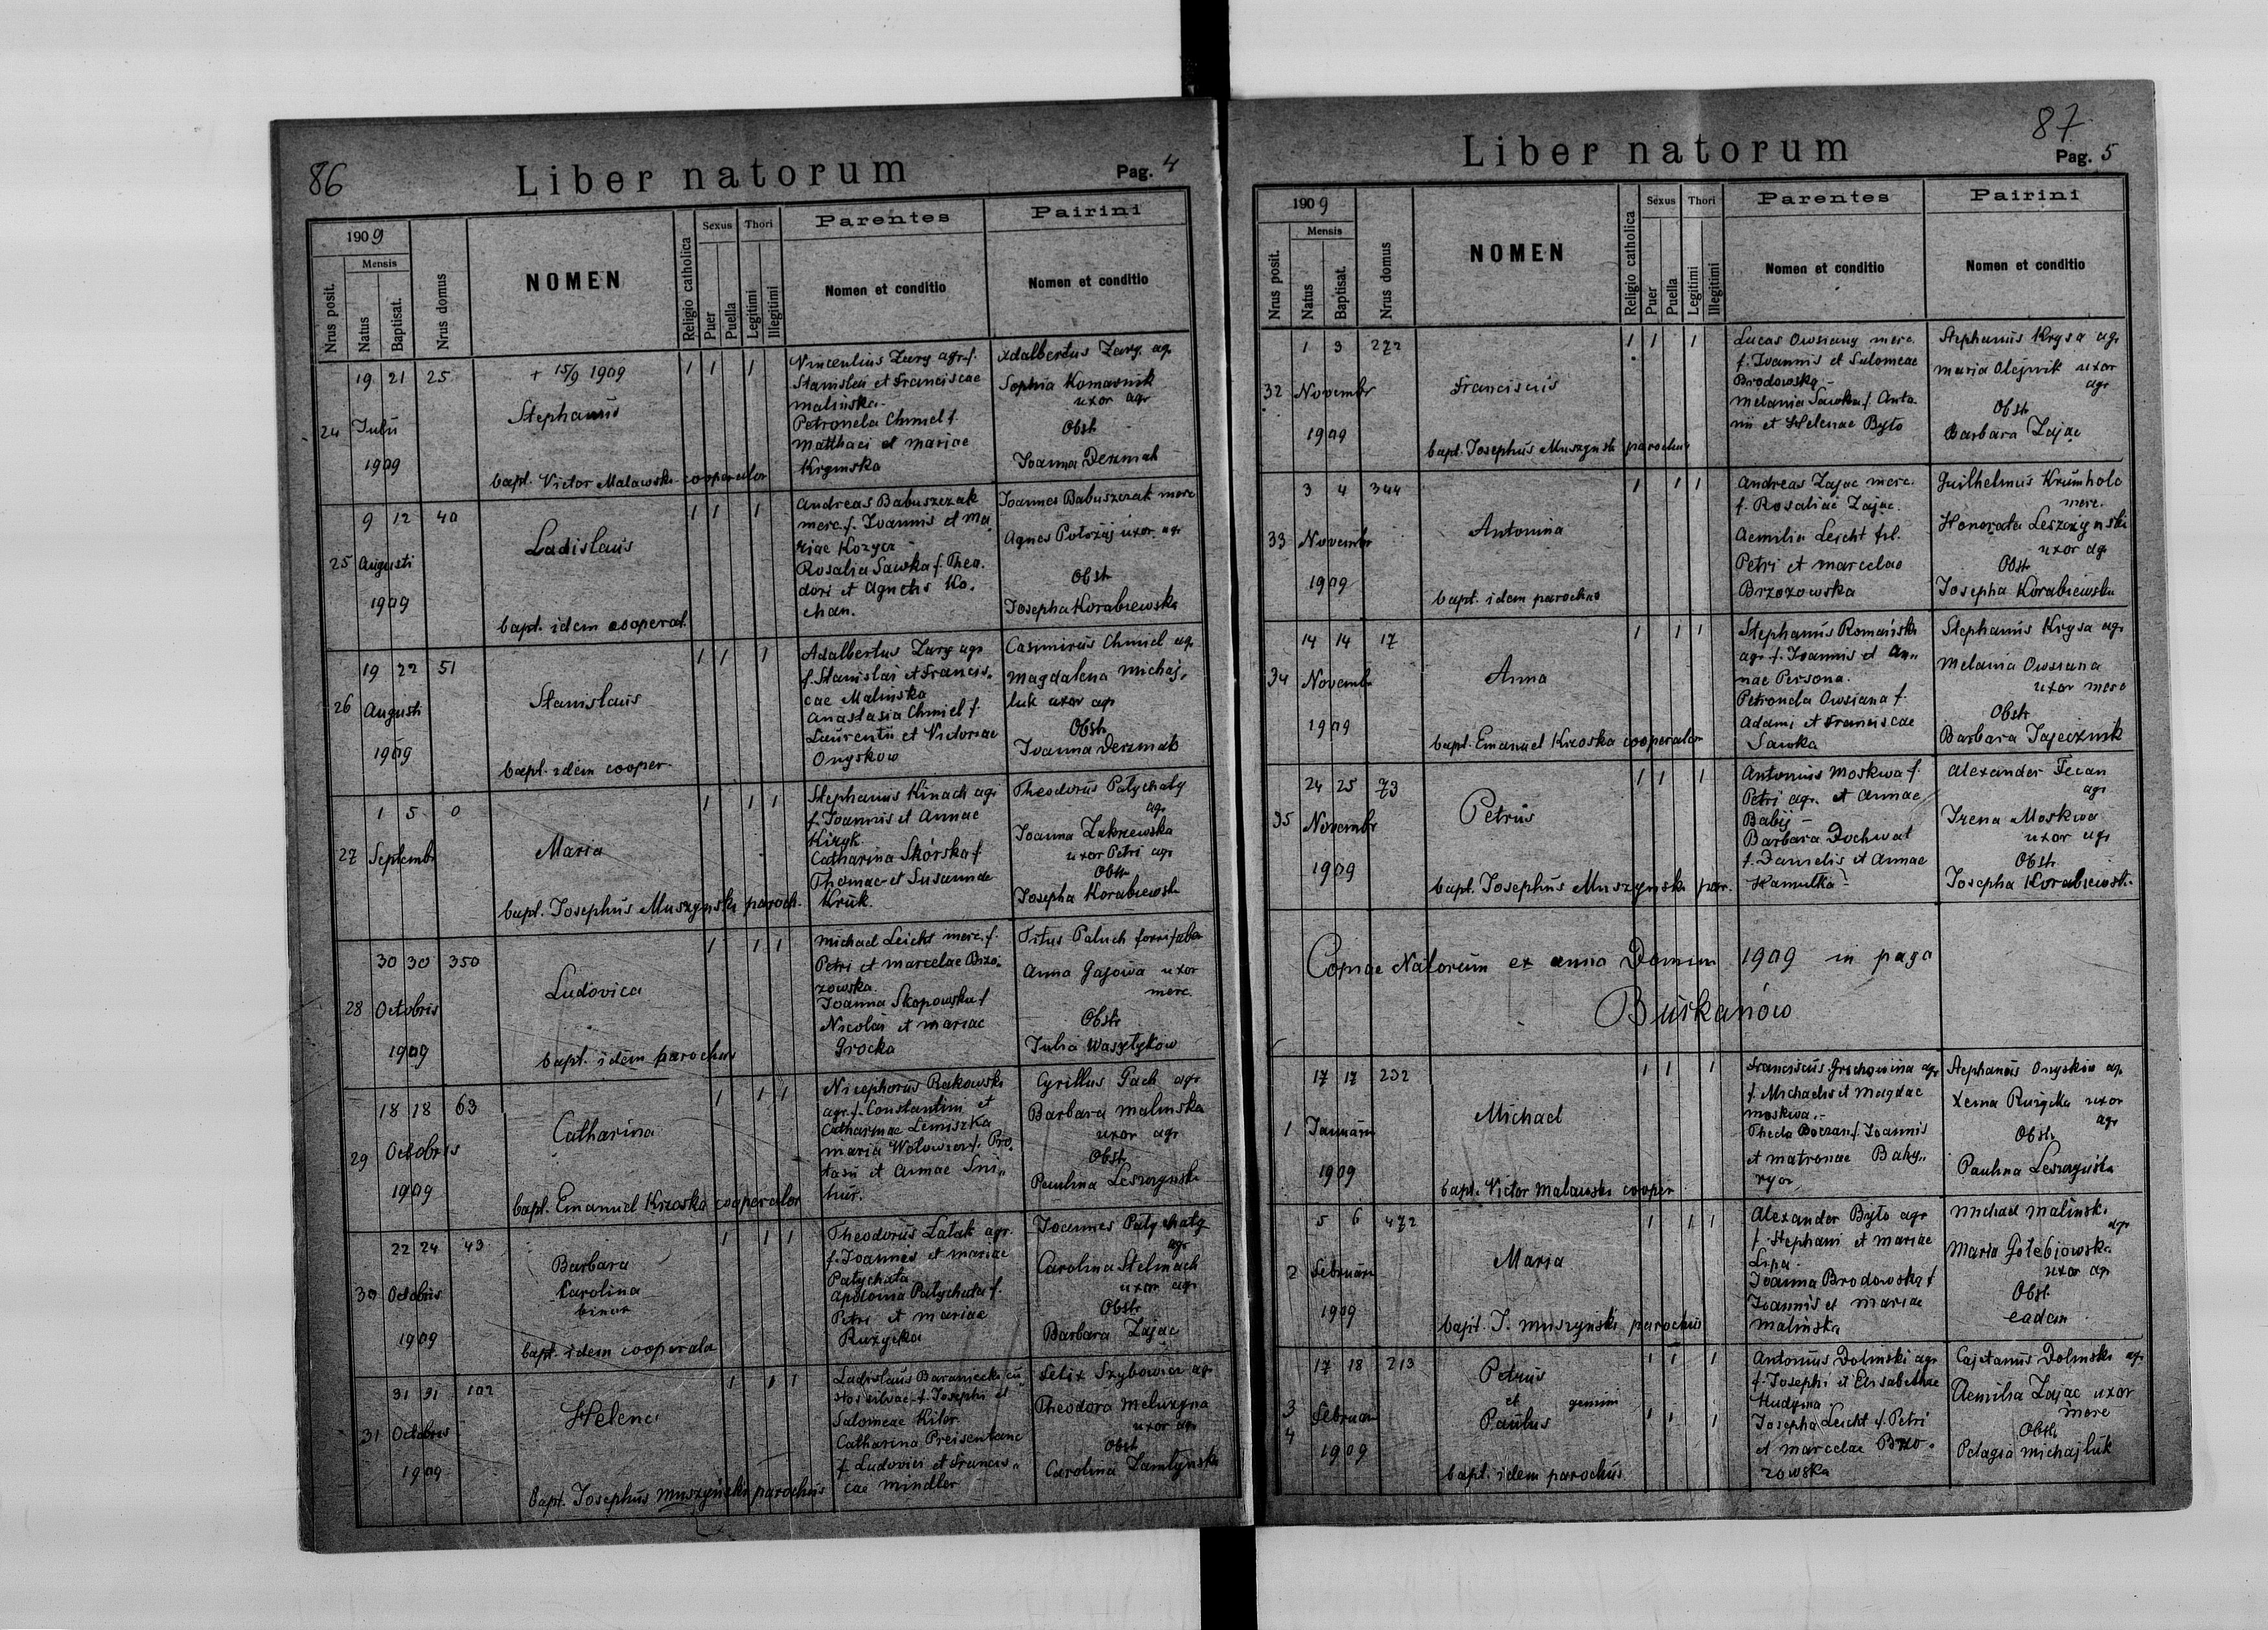 86
Liber natorum
Pag. 4
1909
Nrus posit.
Mensis
Natus
Baptisat.
Nrus domus
NOMEN
Religio catholica
Sexus
Puer
Puella
Thori
Legitimi
Illegitimi
Parentes
Nomen et conditio
Pairini
Nomen et conditio
24
19 21 25
Julii
1909
+ 15/9 1909
Stephanus
bapt. Victor Malawski cooperator
1 1 1
Vincentius Zary agr. f.
Stanislai et Franciscae
Malinska
Petronela Chmiel f.
Matthaei et Mariae
Krymska
Adalbertus Zary agr
Sophia Komarnik
uxor agr
Obst
Joanna Derzmak
25
9 12 40
Augusti
1909
Ladislaus
bapt. idem cooperat.
1 1 1
Andreas Babuszczak
merc. f. Joannis et Ma
riae Kozycz
Rosalia Sawka f. Theo.
dori et Agnetis Ko.
chan.
Joannes Babuszczak merc
Agnes Potozij uxor agr
Obst
Josepha Korabiewska
26
19 22 51
Augusti
1909
Stanislaus
bapt. idem cooper.
1 1 1
Adalbertus Zary agr
f. Stanislai et Francis.
cae Malinska
Anastasia Chmiel f.
Laurentii et Victoriae
Onyskow
Casimirus Chmiel agr
Magdalena Michaj.
luk uxor agr
Obstr
Joanna Derzmak
27
1 5 0
Septembr
Maria
bapt. Josephus Muszynski paroch.
1 1 1
Stephanus Kinach agr
f. Joannis et Annae
Kizyk
Catharina Skórska f.
Thomae et Susannae
Kruk.
Theodorus Patychaty
agr
Joanna Zakrzewska
uxor Petri agr
Obst
Josepha Korabiewsk
28
30 30 350
Octobris
1909
Ludovica
bapt. idem parochus
1 1 1
Michael Leicht merc. f.
Petri et Marcelae Brzo.
zowska.
Joanna Skopowska f
Nicolai et Mariae
Grocka
Titus Paluch
Anna Gajowa uxor
merc.
Obstr
Julia Wasylykow
29
18 18 63
Octobris
1909
Catharina
bapt. Emanuel Krzoska cooperator
1 1 1
Nicephorus Rakowski
agr. f. Constantini et
Catharinae Lemiszka
Maria Wolowiec f. Pro.
tasii et Annae Sni„
hur.
Cyrillus Pach agr
Barbara Malinska
uxor agr
Obst.
Paulina Leszczynsk
30
22 24 43
Octobris
1909
Barbara
Carolina
binar
bapt. idem cooperator
1 1 1
Theodorus Latak agr.
f. Joannes et Mariae
Patychata
Apolonia Patychata f.
Petri et Mariae
Ruzycka
Joannes Patychaty
agr
Carolina Stelmach
uxor agr
Obstr
Barbara Zajac
31
31 31 102
Octobris
1909
Helena
bapt. Josephus Muszyński parochus
1 1 1
Ladislaus Baraniecki cu
stos silvae f. Josephi et
Salomeae Kiler
Catharina Preisentanc
f. Ludovici et Francis„
cae Mindler
Felix Szybowicz agr
Theodora Meluzyna
uxor agr
Obst
Carolina Zamlynska
87
Liber natorum
Pag. 5
1909
Nrus posit.
Mensis
Natus
Baptisat.
Nrus domus
NOMEN
Religio catholica
Sexus
Puer
Puella
Thori
Legitimi
Illegitimi
Parentes
Nomen et conditio
Pairini
Nomen et conditio
32
1 3 272
Novembr
1909
Franciscus
bapt. Josephus Muszynski parochus
1 1 1
Lucas Owsiany merc.
f. Joannis et Salomeae
Brodowska.-
Melania Sawka f. Anto.
nii et Helenae Byto
Stephanus Krysa agr
Maria Olejnik uxor
agr
Obstr
Barbara Zajac
33
3 4 344
Novembr
1909
Antonina
bapt. idem parochus
1 1 1
Andreas Zajac merc.
f. Rosaliae Zajac.
Aemilia Leicht fil.
Petri et Marcelae
Brzozowska
Guilhelmus Krumholc
merc.
Honorata Leszczynski
uxor agr
Obstr
Josepha Korabiewska
34
14 14 17
Novembr
1909
Anna
bapt. Emanuel Krzoska cooperator
1 1 1
Stephanus Romański
agr f. Joannis et An„
nae Persona.
Petronela Owsiana f.
Adami et Franciscae
Sawka
Stephanus Krysa agr
Melania Owsiana
uxor merc
Obstr
Barbara Zajecznik
35
24 25 73
Novembr
1909
Petrus
bapt. Josephus Muszynski par.
1 1 1
Antonius Moskwa f.
Petri agr. et Annae
Babij -
Barbara Dochwat
f. Danielis et Annae
Hamulka -
Alexander Fecan
agr
Irena Moskwa
uxor agr
Obstr
Josepha Korabiewsk.
Copiae Natorum ex anno Domini 1909 in pago
Burkanów
1
17 17 232
Januarii
1909
Michael
bapt. Victor Malawski cooper
1 1 1
Franciscus Grochowina agr
f. Michaelis et Magdae
Moskwa.-
Thecla Boczan f. Joannis
et Matronae Bahy„
ryoz
Stephanus Onyskiw agr
Xenia Ruzycka uxor
agr
Obstr
Paulina Leszczyńska
2
5 6 472
Februarii
1909
Maria
bapt. J. Muszynski parochus
1 1 1
Alexander Byto agr
f. Stephani et Mariae
Lipa.
Joanna Brodowska f
Joannis et Mariae
Malińska
Michael Malinski
agr
Maria Gołebiowska
uxor agr
Obst.
eadem
3
4
17 18 213
Februarii
1909
Petrus
et gemini
Paulus
bapt. idem parochus
1 1 1
1 1 1
Antonius Dolinski agr
f. Josephi et Elisabethae
Hudyma
Josepha Leicht f. Petri
et Marcelae Brzo.
zowska
Cajetanus Dolinski agr
Aemilia Zajac uxor
merc
Obstr
Pelagia Michajluk